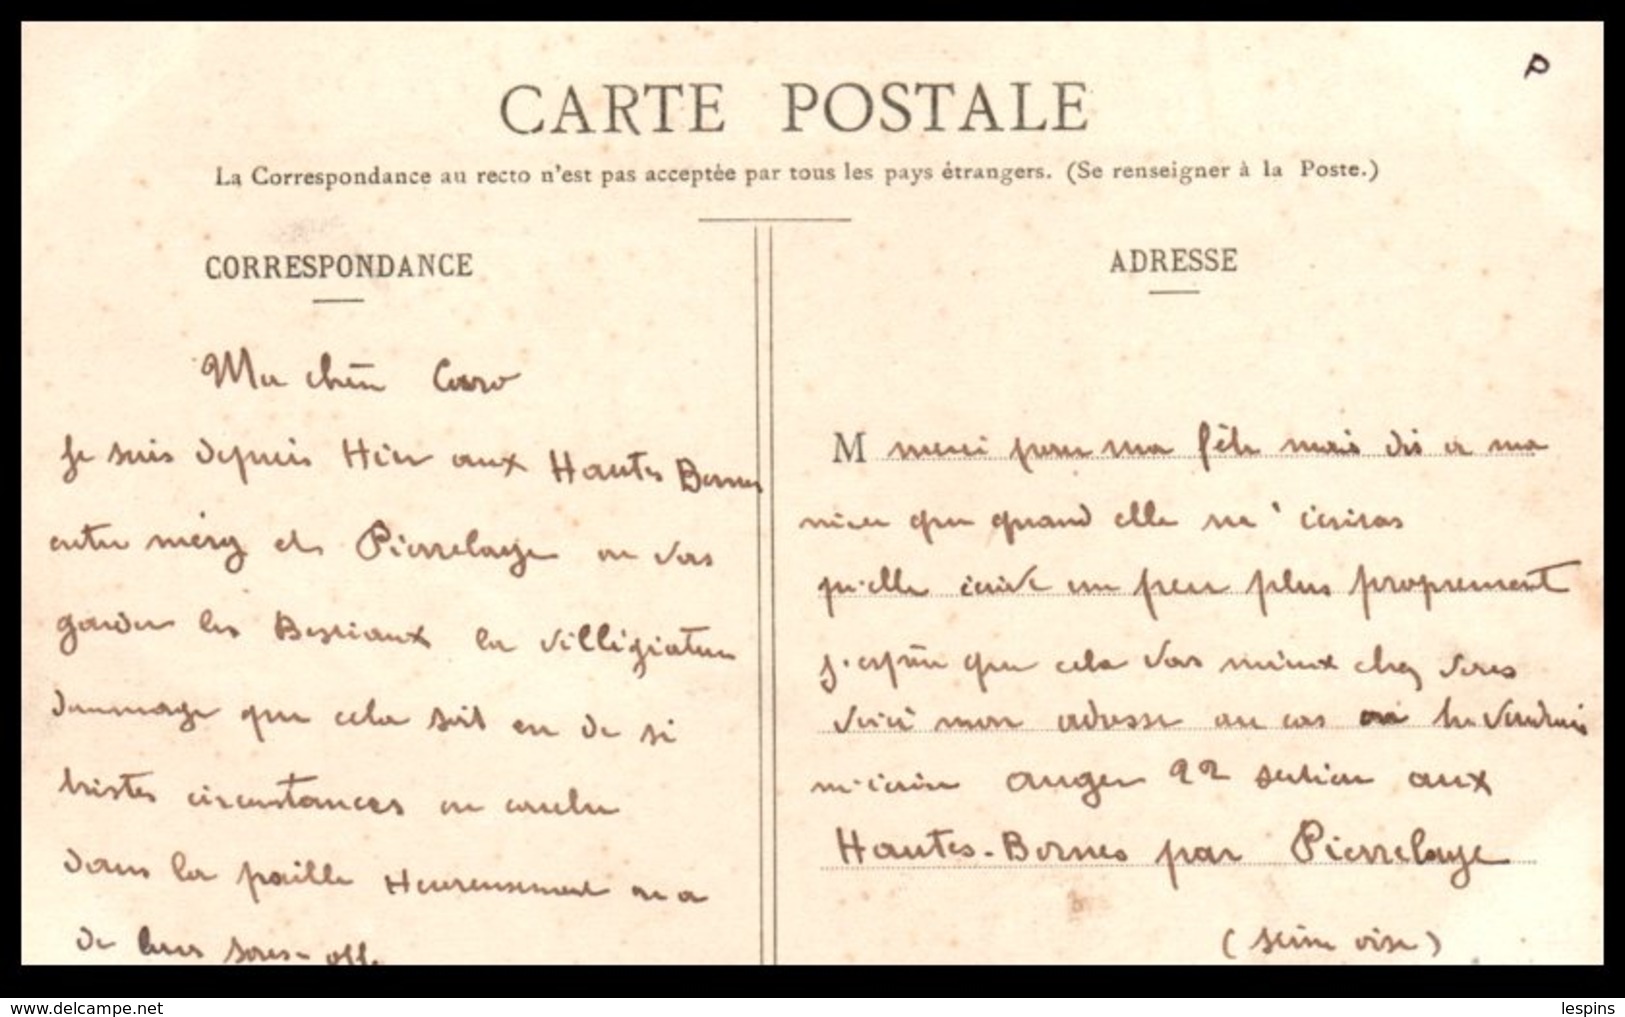 CARTE POSTALE
La Correspondance au recto n'est pas acceptée par tous les pays étrangers. (Se renseigner à la Poste.)
CORRESPONDANCE
Ma chère Caro
Je suis depuis Hier aux Hautes Bornes
entre méry et Pierrelaye on vas
garder les Bestiaux la villégiature
dommage que cela soit en de si
tristes circonstances on couche
dans la paille Heureusement on a
de bons sous-off.
ADRESSE
M merci pour ma fête mais dis a ma
nièce que quand elle m'écriras
qu'elle écrive un peu plus proprement
j'espère que cela vas mieux chez vous
voici mon adresse au cas ou tu voudrais
m'écrire auger 22 section aux
Hautes-Bornes par Pierrelaye
(seine oise)
P
www.delcampe.net
lespins